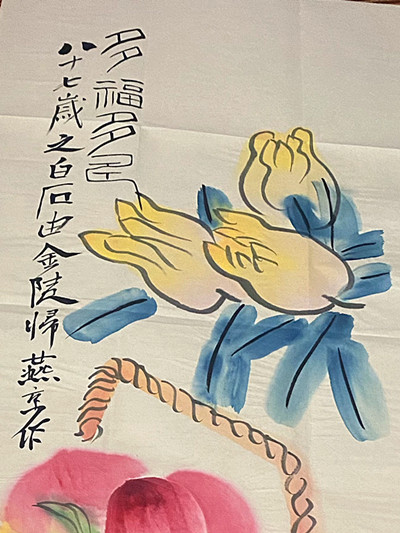 多福多
八十七岁之白石由金陵归燕京作